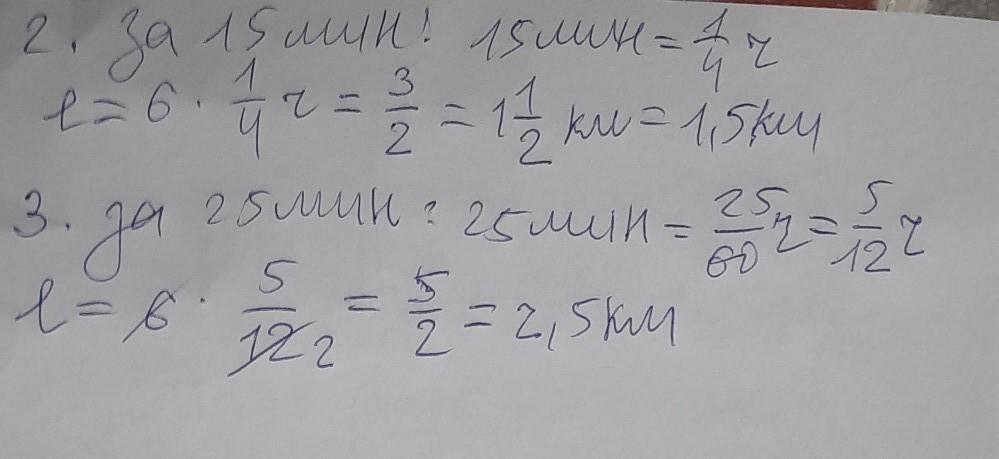 2. За 15 мин: 15 мин = 1/4 ч
l = 6 · 1/4 ч = 3/2 = 1 1/2 км = 1,5 км
3. за 25 мин: 25 мин = 25/60 ч = 5/12 ч
l = 6 · 5/12 2 = 5/2 = 2,5 км